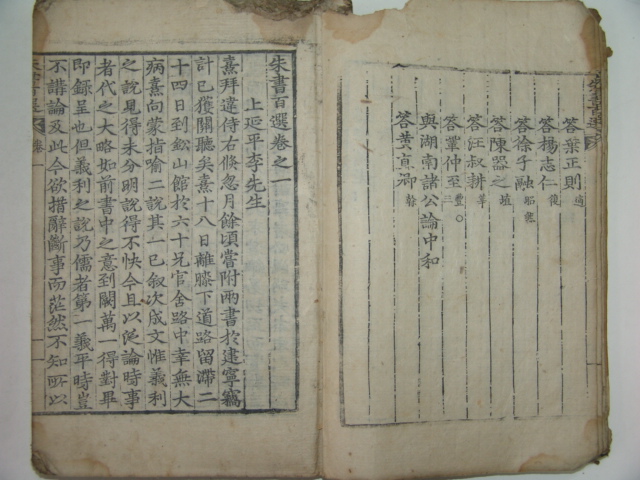 答葉正則適
答楊志仁復
答徐子融昭然
答陳器之埴
答汪叔耕莘
答鞏仲至豐三
與湖南諸公論中和
答黃直卿榦
朱書百選卷之一
上延平李先生
熹拜違侍右倐忽月餘頃嘗附兩書於建寧竊
計已獲關聽矣熹十八日離膝下道路留滯二
十四日到鈆山館於六十兄官舍路中幸無大
病熹向蒙指喻二說其一已叙次成文惟義利
之說見得未分明說得不快今且以泛論時事
者代之大略如前書中之意到闕萬一得對畢
即錄呈也但義利之說乃儒者第一義平時豈
不講論及此今欲措辭斷事而茫然不知所以